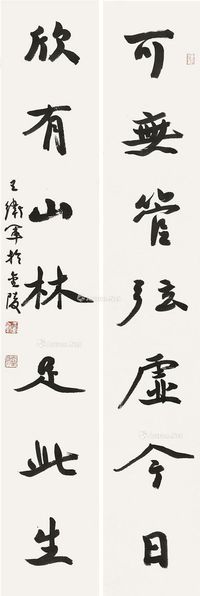 可無管弦虛今日
欣有山林足此生
王衛軍於金陵